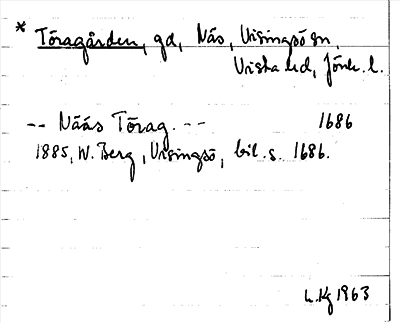 * Töragården, gd, Näs, Visingsö sn,
Vista hd, Jönk. l.
-- Nääs Törag. --   1686
1885, W. Berg, Visingsö, bil. s. 1686.
L.Kg 1963